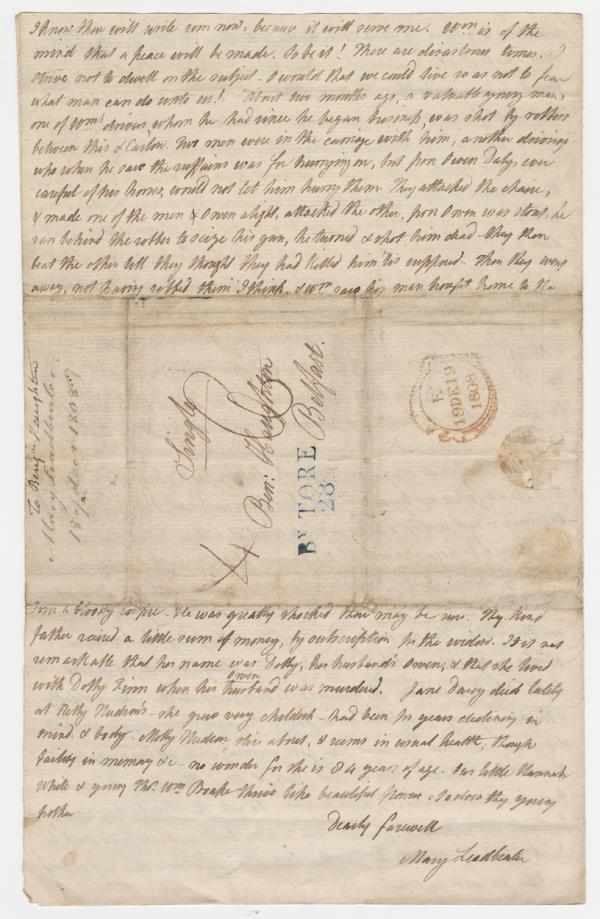 I know thou will write Wm now, because it will serve me. Wm is of the
mind that a peace will be made. So be it! These are disastrous times. I
strive not to dwell on the subject. I would that we could live so as not to fear
what man can do unto us! About two months ago, a valuable young man,
one of Wm's drivers, whom he had since he began business, was shot by robbers
between this & Carlow. Two men were in the carriage with him, another driving
who when he saw the ruffians was for hurrying on, but poor Owen Daly, ever
careful of his horses, would not let him hurry them. They attacked the chaise,
& made one of the men & Owen alight, attacked the other, poor Owen was stout, he
ran behind the robber to seize his gun, he turned & shot him dead – they then
beat the other till they thought they had killed him 'tis supposed. Then they went
away, not having robbed them I think. & Wm saw his man brought home to
To Benjn Haughton
Mary Leadbeater
18 of decr 1808
Single
8
Benn: Haughton
Belfast.
BY TORE
28
19 DE 19
1808
a bloody corpse – He was greatly shocked thou may be sure. Thy kind
father raised a little sum of money, by subscription for the widow. It is not
remarkable that her name was Dolly, her husband's Owen, & that she lived
with Dolly Finn when her Owen husband was murdered. Jane Darcy died lately
at Betty Hudson's – she grew very childish – had been for years declining in
mind & body. Molly Hudson stirs about, & seems in usual health, though
failing in memory &c – no wonder for she is 84 years of age. Our little Hannah
White & young Thos. Wm Boake thrive like beautiful flowers. So does thy young
brother
Dearly farewell
Mary Leadbeater